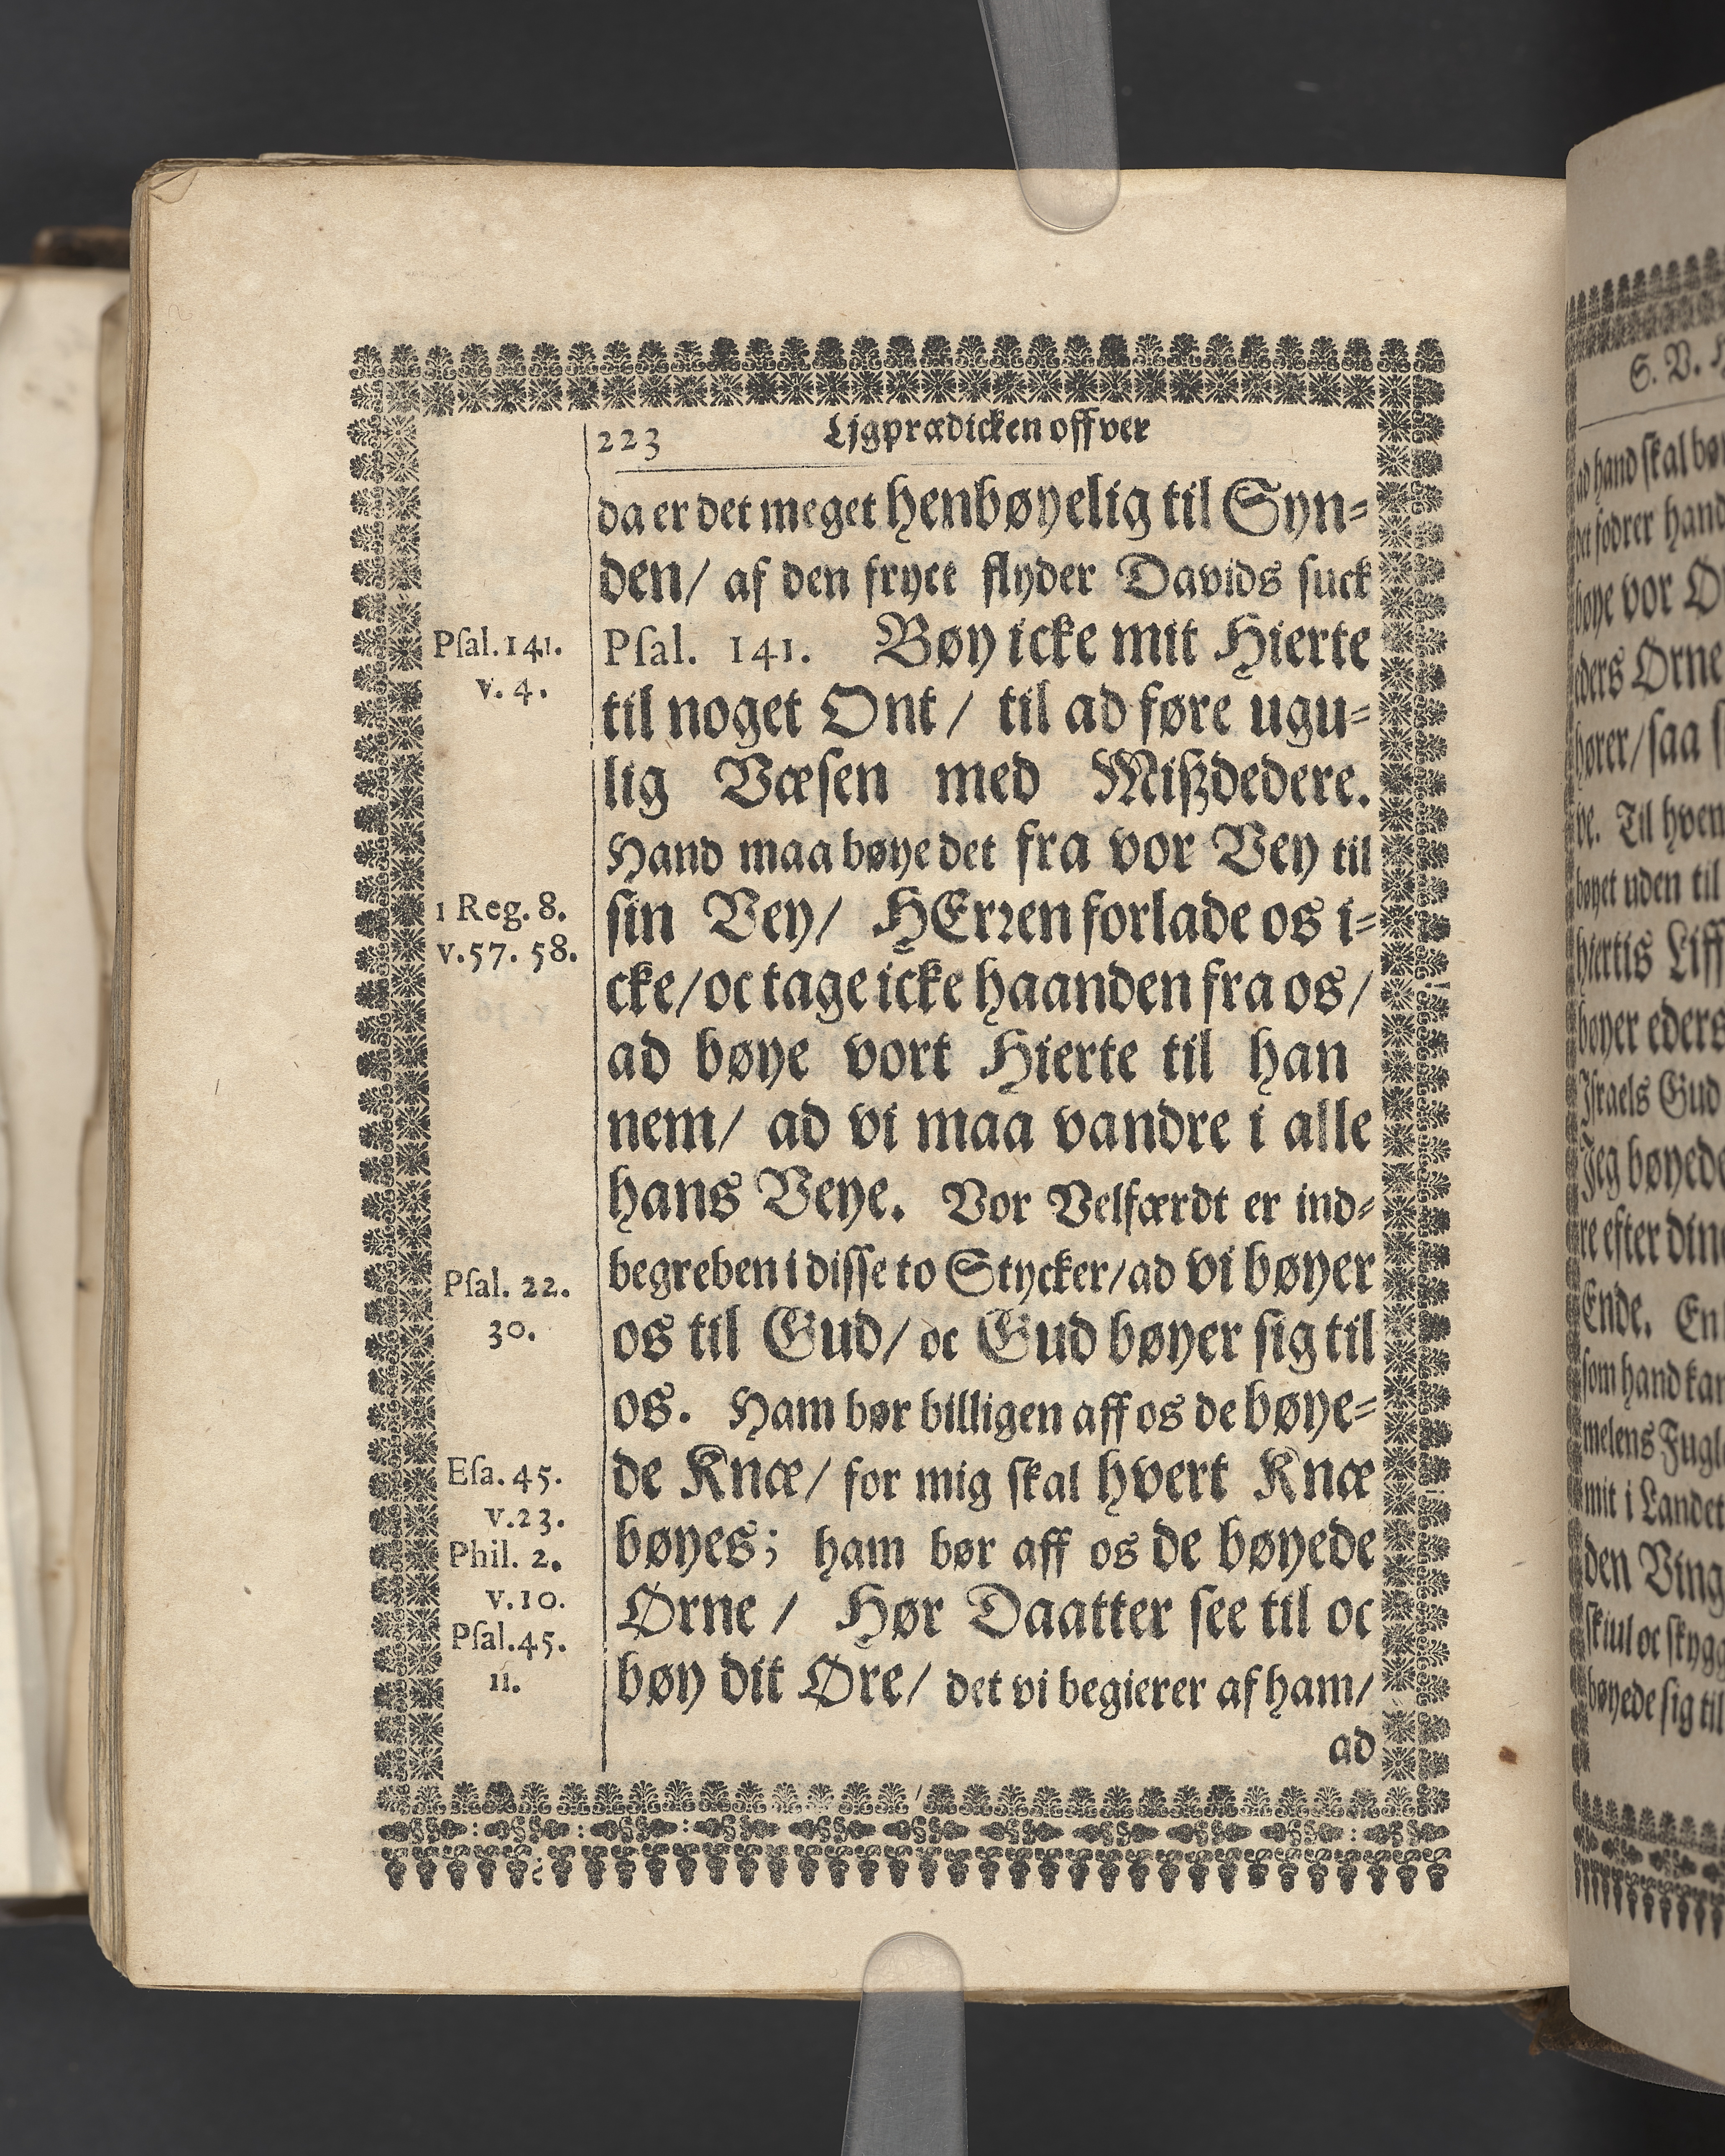 223 Ljgprædicken offver
da er det meget henbøyelig til Syn=
den/ af den fryct flyder Davids suck
Psal. 141. Bøy icke mit Hierte
til noget Ont/ til ad føre ugu=
lig Væsen med Mißdedere.
Hand maa bøye det fra vor Vey til
sin Vey/ HErren forlade os i=
cke/ oc tage icke haanden fra os/
ad bøye vort Hierte til han
nem/ ad vi maa vandre i alle
hans Veye. Vor Velfærdt er ind=
begreben i disse to Stycker/ ad vi bøyer
os til Gud/ oc Gud bøyer sig til
os. Ham bør billigen aff os de bøye=
de Knæ/ for mig skal hvert Knæ
bøyes; ham bør aff os de bøyede
Ørne / Hør Daatter see til oc
bøy dit Øre/ det vi begierer af ham/
ad
Psal. 141.
v. 4.
1 Reg. 8.
v. 57. 58.
Psal. 22.
30.
Esa. 45.
v. 23.
Phil. 2.
v. 10.
Psal. 45.
11.
S. V.
ad hand skal
det fodrer hand
bøye vor
eders Ørne
hører/ saa
ve. Til
bøyet uden til
hiertis Liff
bøyer eders
Israels Gud
Jeg bøyede
re efter
Ende. En
som hand
melens
mit i Landet
den
skiul oc
bøyede sig til